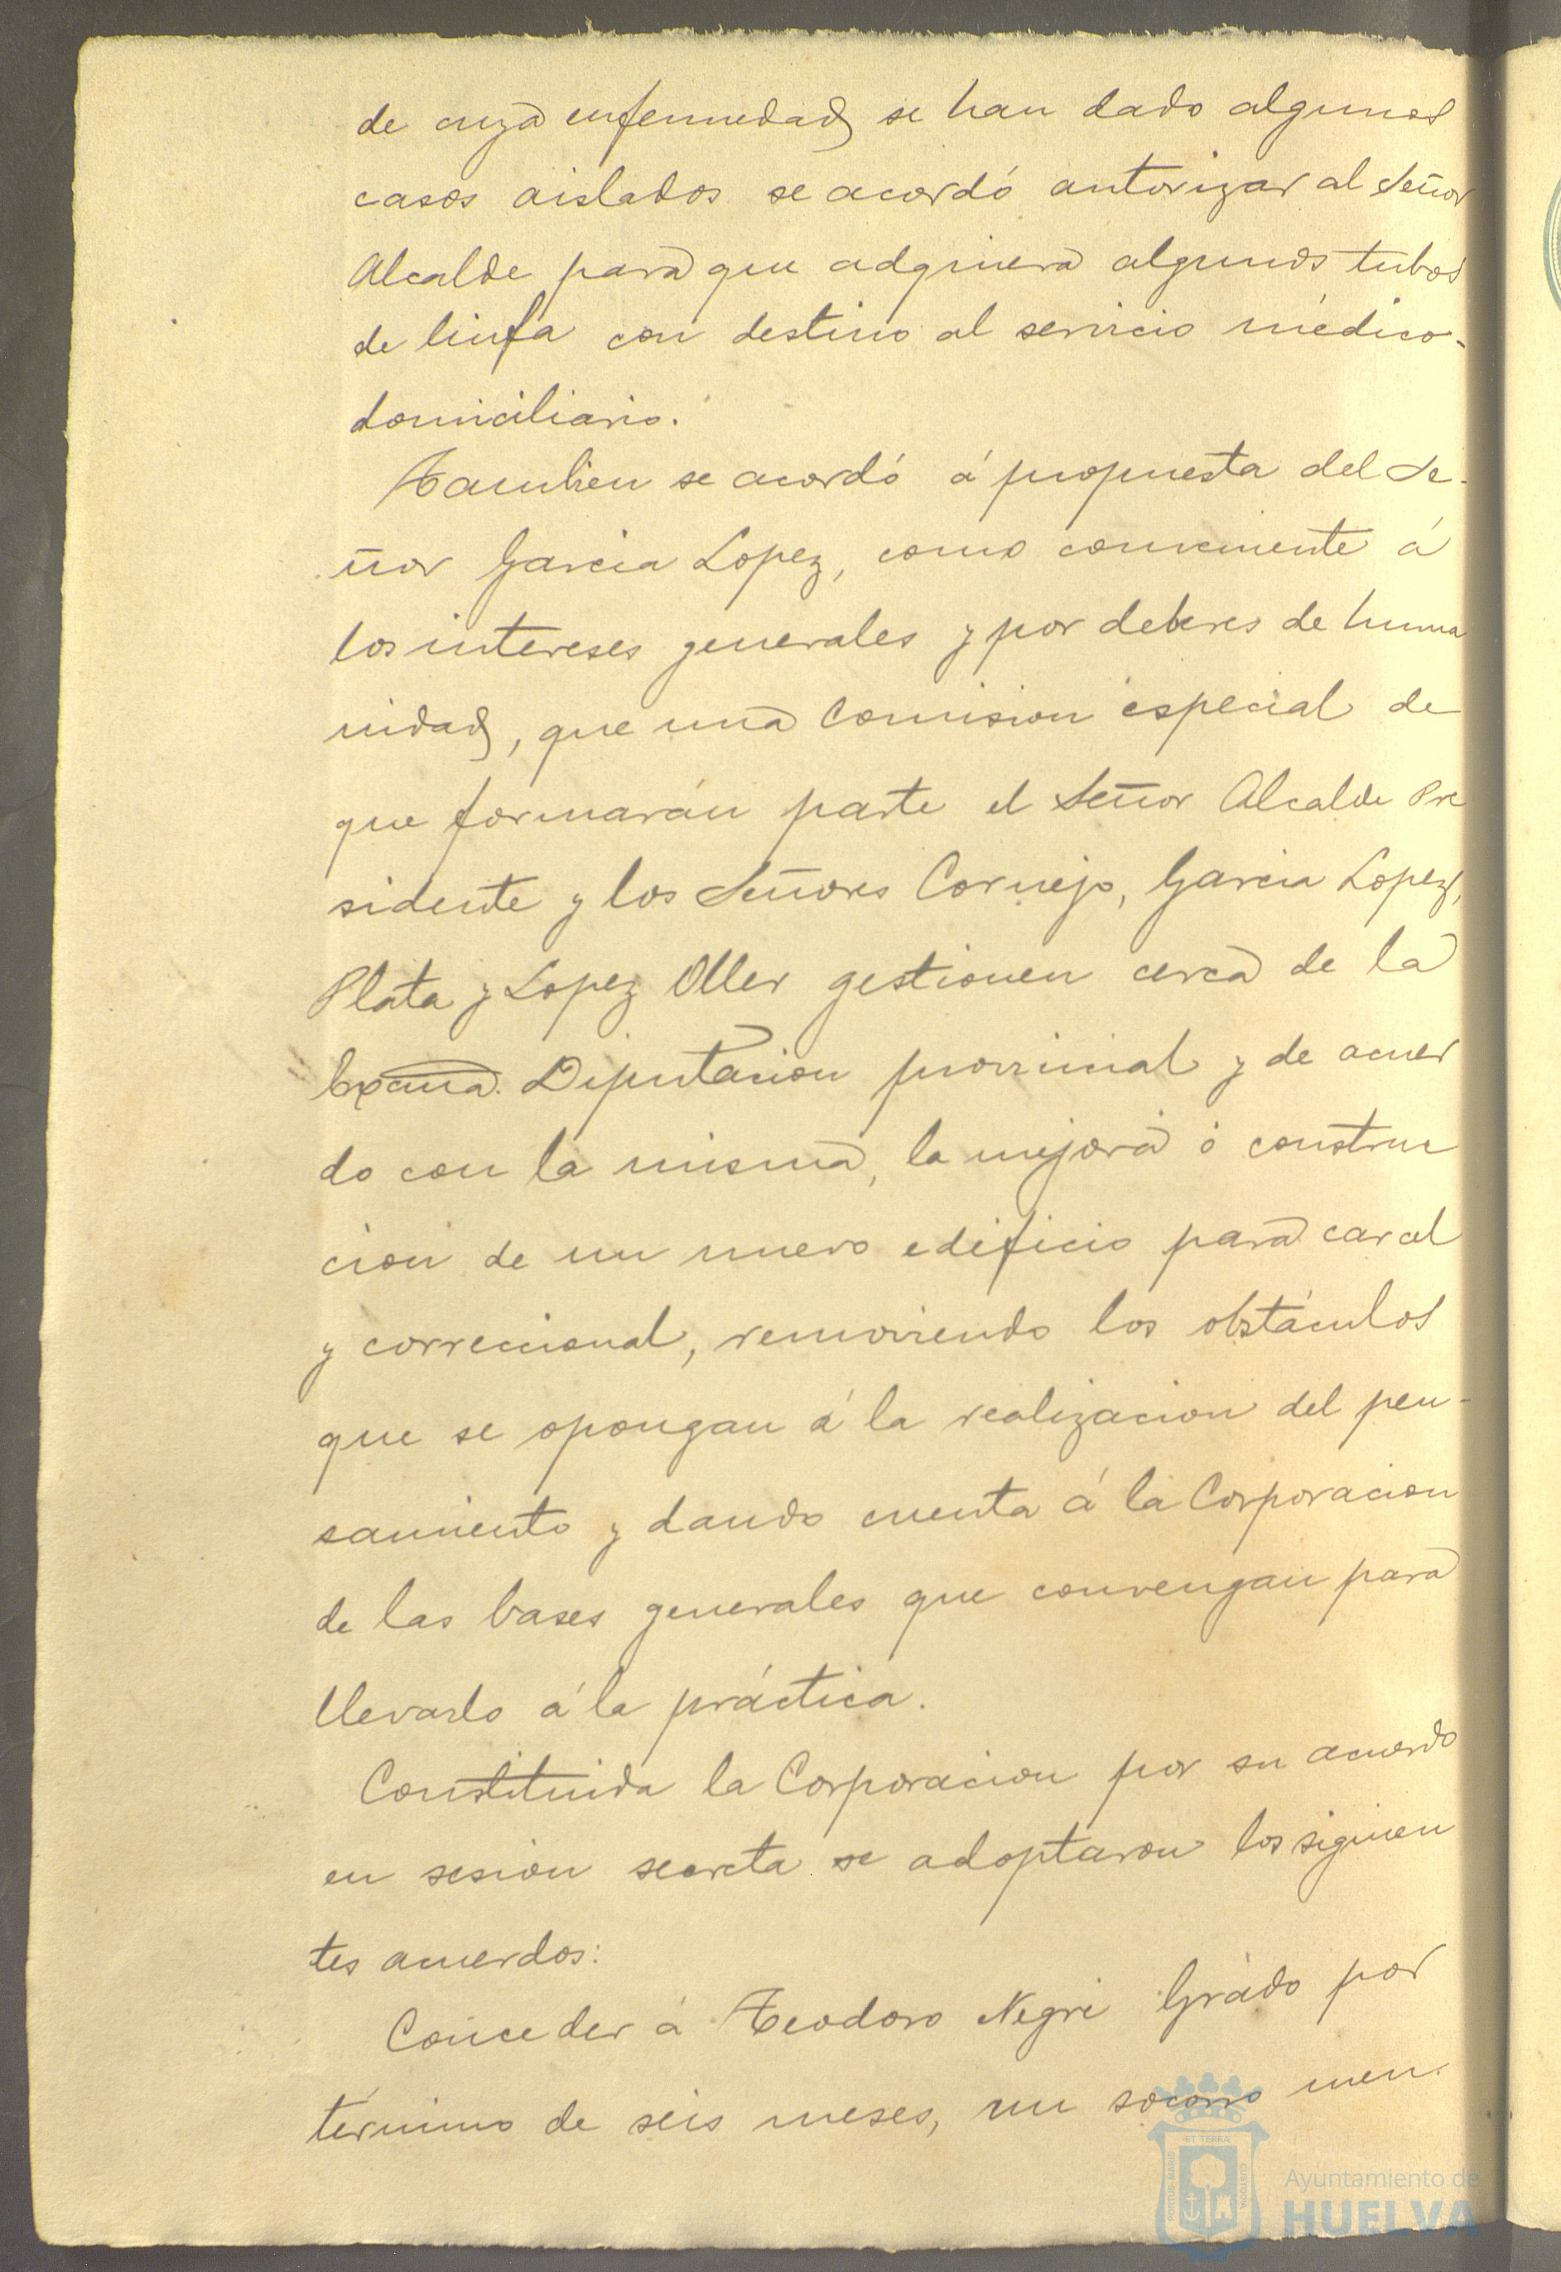 de cuya enfermedad se han dado algunos
casos aislados se acordó autorizar al Señor
Alcalde para que adquiera algunos tubos
de linfa con destino al servicio médico-
domiciliario.
Tambien se acordó á propuesta del Se-
ñor Garcia Lopez, como conveniente á
los intereses generales y por deberes de huma
nidad, que una Comision especial de
que formarán parte el Señor Alcalde Pre
sidente y los Señores Cornejo, Garcia Lopez,
Plata y Lopez Oller gestionen cerca de la
Excma. Diputacion provincial y de acuer
do con la misma, la mejora ó construc
cion de un nuevo edificio para carcel
y correccional, removiendo los obstáculos
que se opongan á la realizacion del pen-
samiento y dando cuenta á la Corporacion
de las bases generales que convengan para
llevarlo á la práctica.
Constituida la Corporacion por su acuerdo
en sesion secreta se adoptaron los siguien
tes acuerdos:
Conceder á Teodoro Negri Grado por
término de seis meses, un socorro men-
PORTUS MARIS
ET TERRÆ
CUSTODIA
Ayuntamiento de
HUELVA